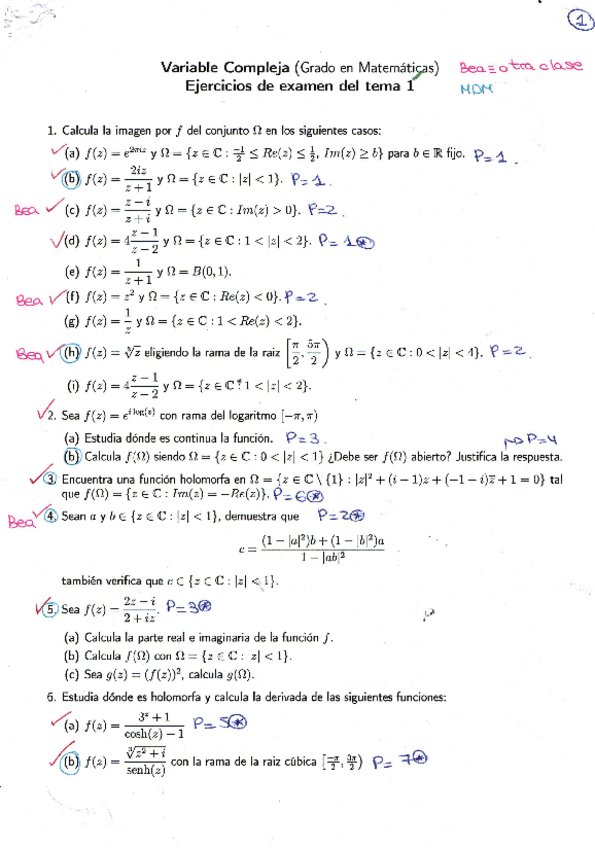 1
Variable Compleja (Grado en Matemáticas) Bea = otra clase
Ejercicios de examen del tema 1 MDM
1. Calcula la imagen por f del conjunto Ω en los siguientes casos:
(a) f(z) = e^{2πiz} y Ω = {z ∈ ℂ : -1/2 ≤ Re(z) ≤ 1/2, Im(z) ≥ b} para b ∈ ℝ fijo. P=1.
(b) f(z) = 2iz/(z+1) y Ω = {z ∈ ℂ : |z| < 1}. P=1.
Bea (c) f(z) = (z−i)/(z+i) y Ω = {z ∈ ℂ : Im(z) > 0}. P=2.
(d) f(z) = 4(z−1)/(z−2) y Ω = {z ∈ ℂ : 1 < |z| < 2}. P=1⊛
(e) f(z) = 1/(z+1) y Ω = B(0,1).
Bea (f) f(z) = z² y Ω = {z ∈ ℂ : Re(z) < 0}. P=2.
(g) f(z) = 1/z y Ω = {z ∈ ℂ : 1 < Re(z) < 2}.
Bea (h) f(z) = √z eligiendo la rama de la raiz [π/2, 5π/2) y Ω = {z ∈ ℂ : 0 < |z| < 4}. P=2.
(i) f(z) = 4(z−1)/(z−2) y Ω = {z ∈ ℂ : 1 < |z| < 2}.
2. Sea f(z) = e^{i log(z)} con rama del logaritmo [−π, π)
(a) Estudia dónde es continua la función. P=3. P=4
(b) Calcula f(Ω) siendo Ω = {z ∈ ℂ : 0 < |z| < 1} ¿Debe ser f(Ω) abierto? Justifica la respuesta.
3. Encuentra una función holomorfa en Ω = {z ∈ ℂ \ {1} : |z|² + (i − 1)z + (−1 − i)z̅ + 1 = 0} tal
que f(Ω) = {z ∈ ℂ : Im(z) = −Re(z)}. P=6⊛
Bea 4. Sean a y b ∈ {z ∈ ℂ : |z| < 1}, demuestra que P=2⊛
c = ((1 − |a|²)b + (1 − |b|²)a)/(1 − |ab|²)
también verifica que c ∈ {z ∈ ℂ : |z| < 1}.
5. Sea f(z) = (2z − i)/(2 + iz). P=3⊛
(a) Calcula la parte real e imaginaria de la función f.
(b) Calcula f(Ω) con Ω = {z ∈ ℂ : |z| < 1}.
(c) Sea g(z) = (f(z))², calcula g(Ω).
6. Estudia dónde es holomorfa y calcula la derivada de las siguientes funciones:
(a) f(z) = (3^z + 1)/(cosh(z) − 1) P=5⊛
(b) f(z) = ∛(z² + i)/senh(z) con la rama de la raiz cúbica [−π/2, 3π/2) P=7⊛